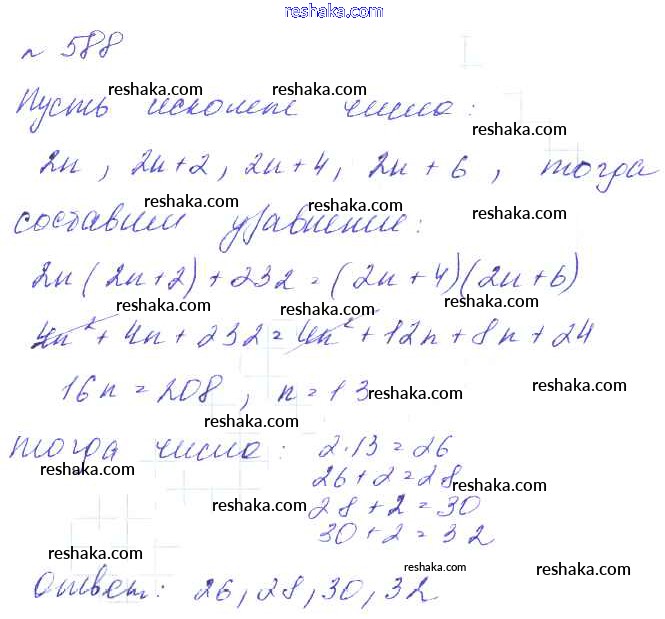 reshaka.com
№ 588
reshaka.com reshaka.com
Пусть искомые числа:
reshaka.com
2n, 2n+2, 2n+4, 2n+6, тогда
reshaka.com reshaka.com reshaka.com
составим уравнение:
2n(2n+2)+232=(2n+4)(2n+6)
reshaka.com reshaka.com reshaka.com
4n²+4n+232=4n²+12n+8n+24
16n=208, n=13
reshaka.com reshaka.com
reshaka.com
Тогда числа: 2·13=26
reshaka.com reshaka.com
26+2=28
reshaka.com
28+2=30
reshaka.com
30+2=32
reshaka.com reshaka.com reshaka.com
Ответ: 26, 28, 30, 32